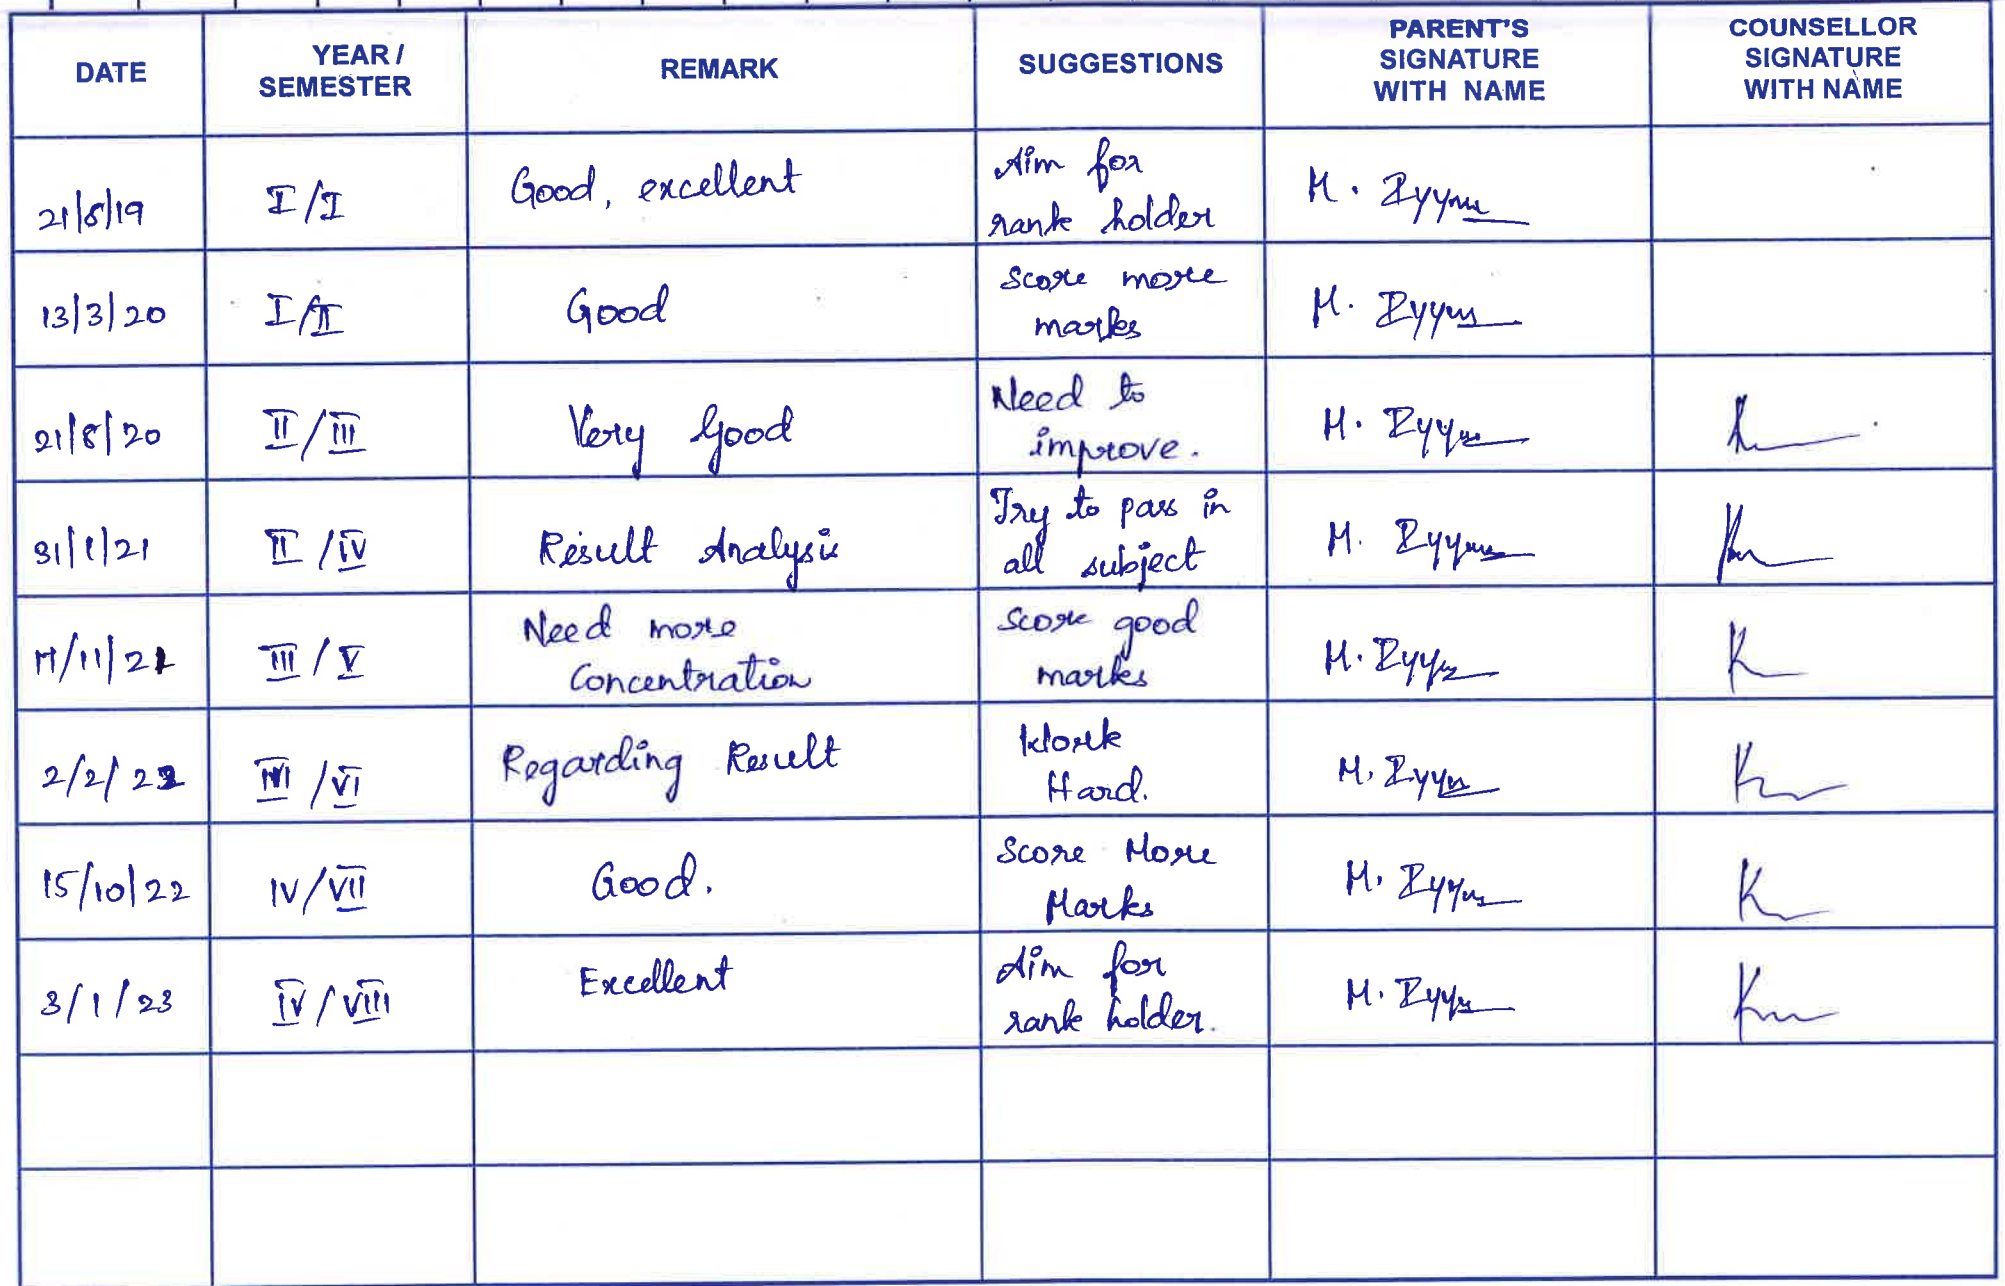 DATE
YEAR / SEMESTER
REMARK
SUGGESTIONS
PARENT'S SIGNATURE WITH NAME
COUNSELLOR SIGNATURE WITH NAME
21/8/19
I/I
Good, excellent
Aim for
rank holder
M.
13/3/20
I/II
Good
Score more
marks
M.
21/8/20
II/III
Very Good
Need to
improve.
M.
31/1/21
II/IV
Result Analysis
Try to pass in
all subject
M.
/11/21
III/V
Need more
Concentration
Score good
marks
M.
2/2/22
III/VI
Regarding Result
Work
Hard.
M.
15/10/22
IV/VII
Good.
Score More
Marks
M.
3/1/23
IV/VIII
Excellent
Aim for
rank holder.
M.